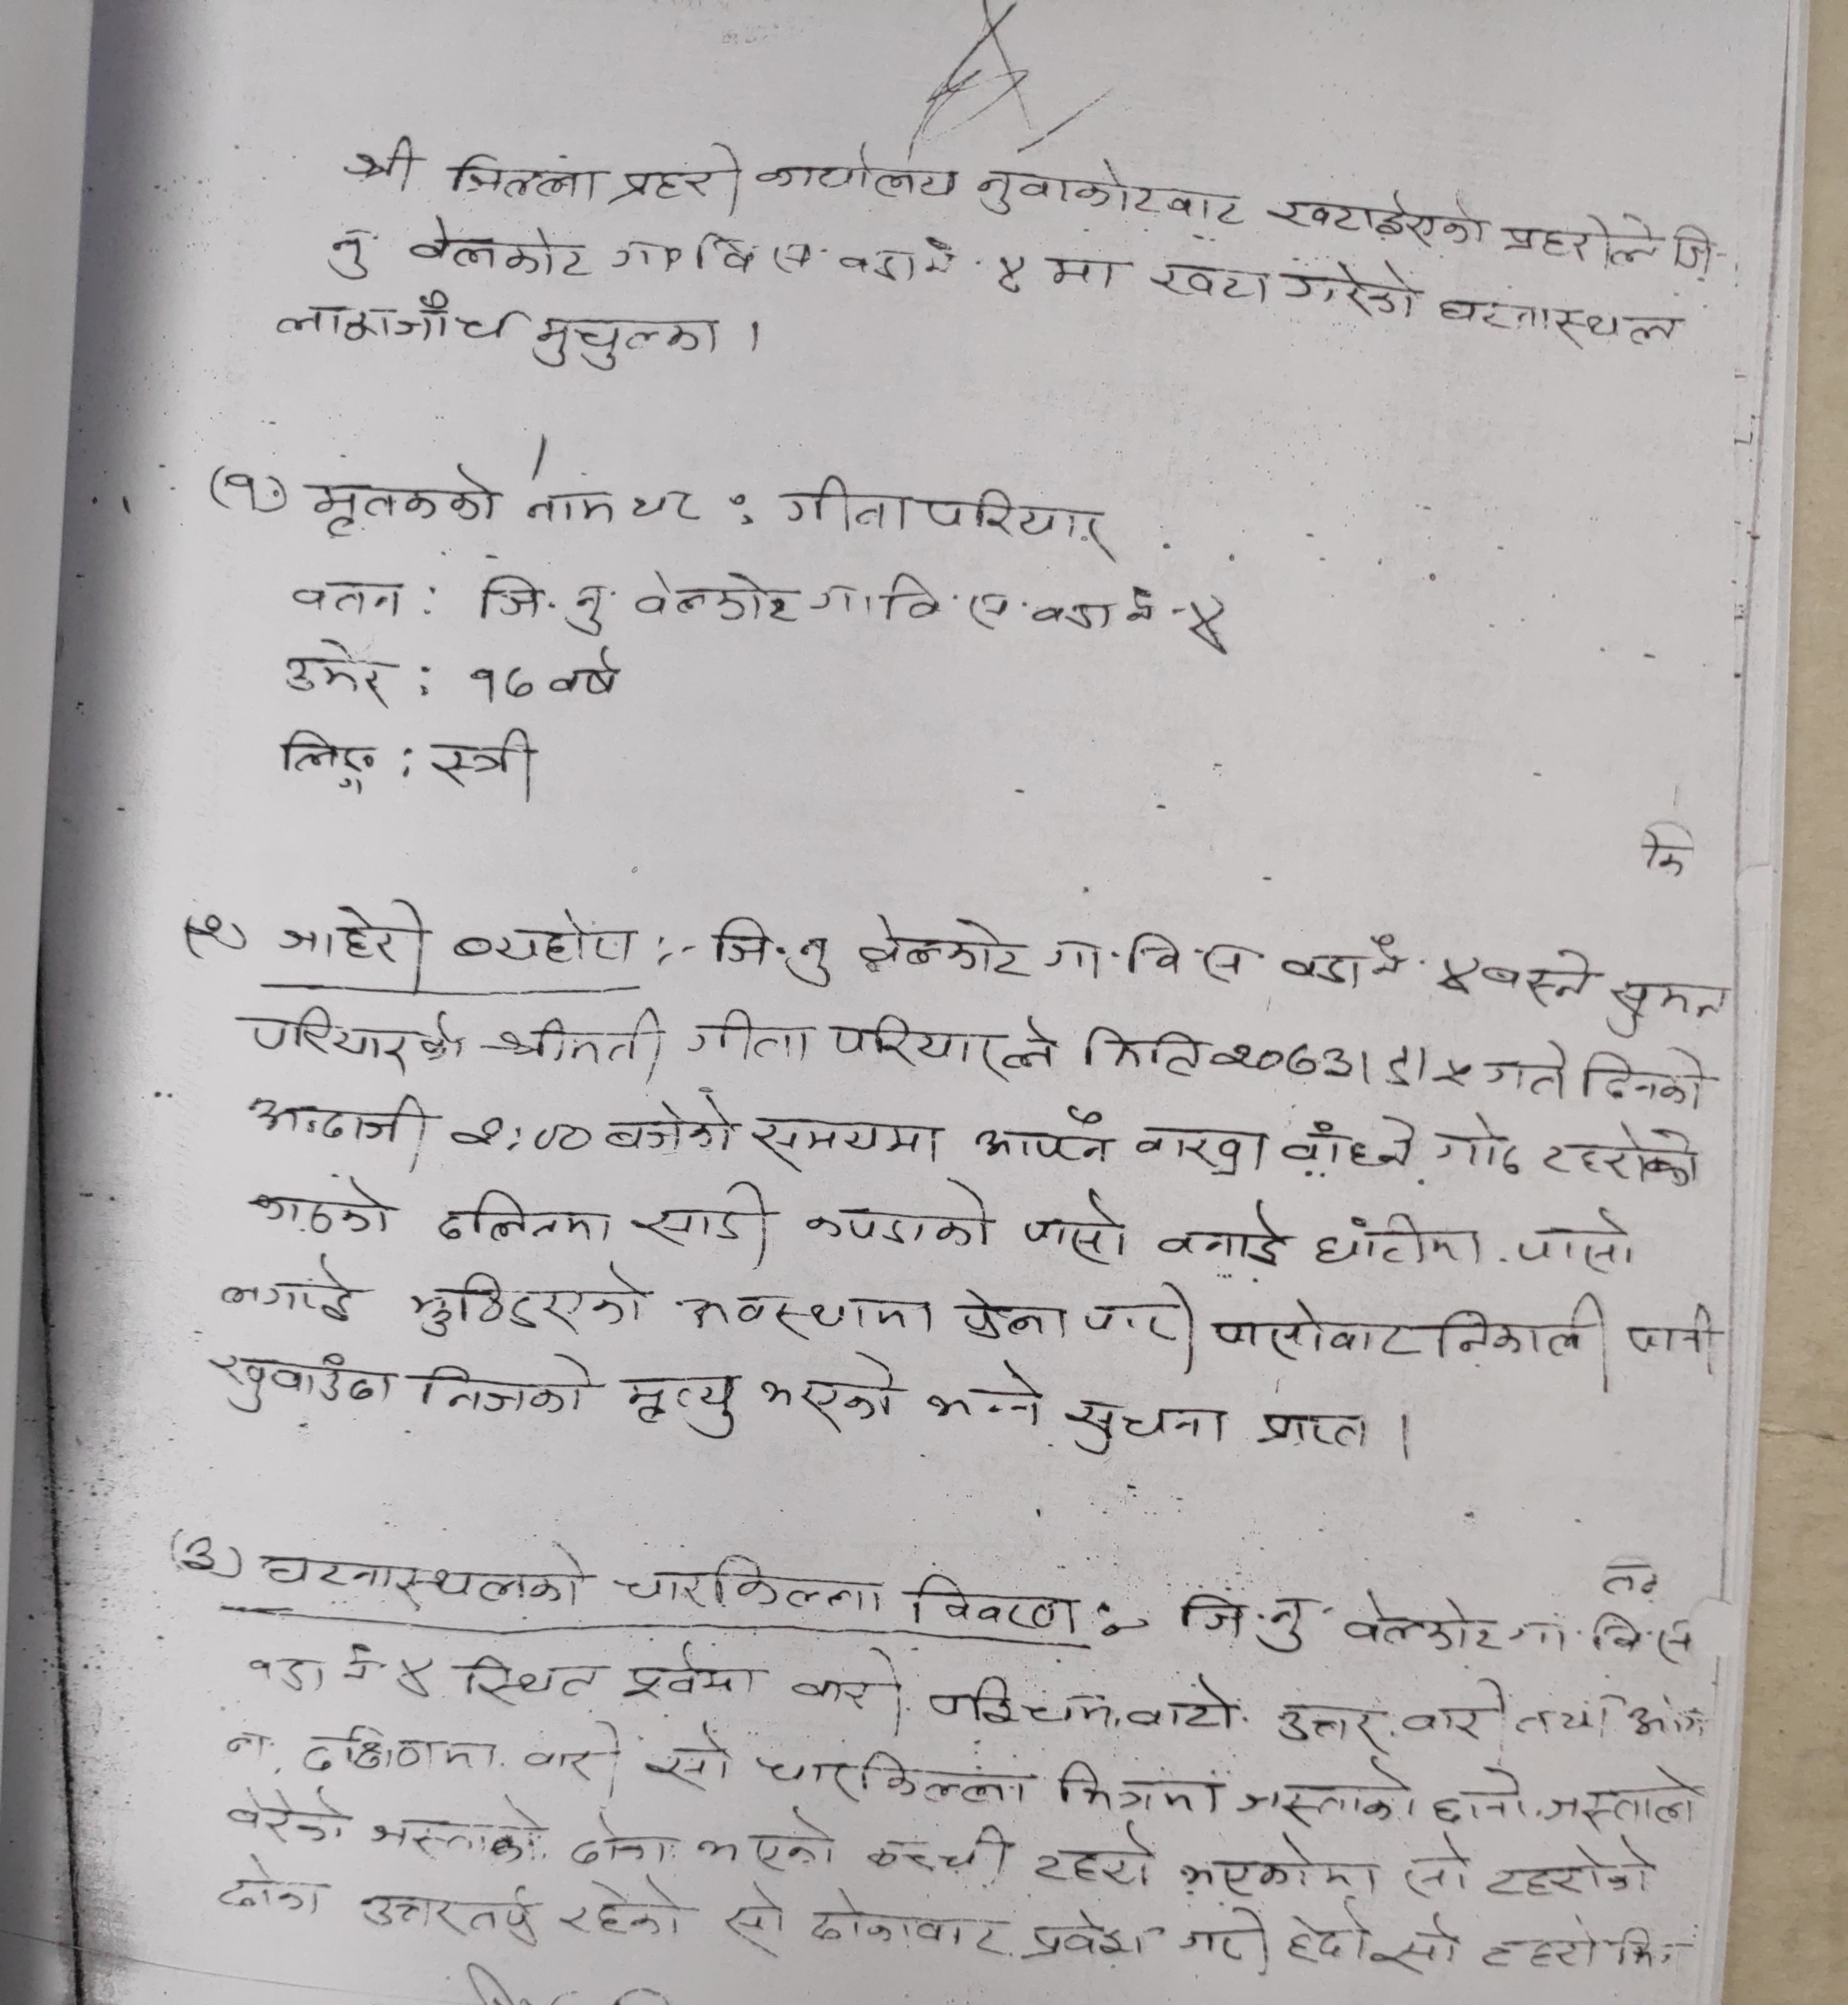 श्री जिल्ला प्रहरी कार्यालय नुवाकोटबाट खटाईएको प्रहरीले जि.
नु वेलकोट गा वि स वडा नं. ४ मा खटा गरेको घटनास्थल
लासजाँच मुचुल्का ।
(१) मृतकको नाम थर : गीता परियार
वतन : जि. नु. वेलकोट गा वि. स. वडा नं. ४
उमेर : १७ वर्ष
लिङ्ग : स्त्री
(२) जाहेरी व्यहोरा :- जि. नु वेलकोट गा. वि. स वडा नं. ४ बस्ने सुमन
परियारको श्रीमती गीता परियारले मिति २०७३। ५ गते दिनको
अन्दाजी २:०० बजेको समयमा आफ्नै बाख्रा बाँध्ने गोठ टहरोको
काठको दलिनमा साडी कपडाको पासो वनाई घाँटीमा पासो
लगाई झुण्डिएको अवस्थामा फेला पारी पासोबाट निकाली पानी
खुवाउँदा निजको मृत्यु भएको भन्ने सुचना प्राप्त ।
(३) घटनास्थलको चारकिल्ला विवरण :- जि. नु. वेलकोट गा. वि. स
वडा नं ४ स्थित पूर्वमा वारी पश्चिम वाटो उत्तर वारी तथा आंग
न. दक्षिणमा वारी सो चारकिल्ला भित्रमा जस्ताको छानो जस्ताले
वेरेको जस्ताको ढोका भएको कच्ची टहरो भएकोमा सो टहरोको
ढोका उत्तरतर्फ रहेको सो ढोकावाट प्रवेश गरी हेर्दा सो टहरो भि